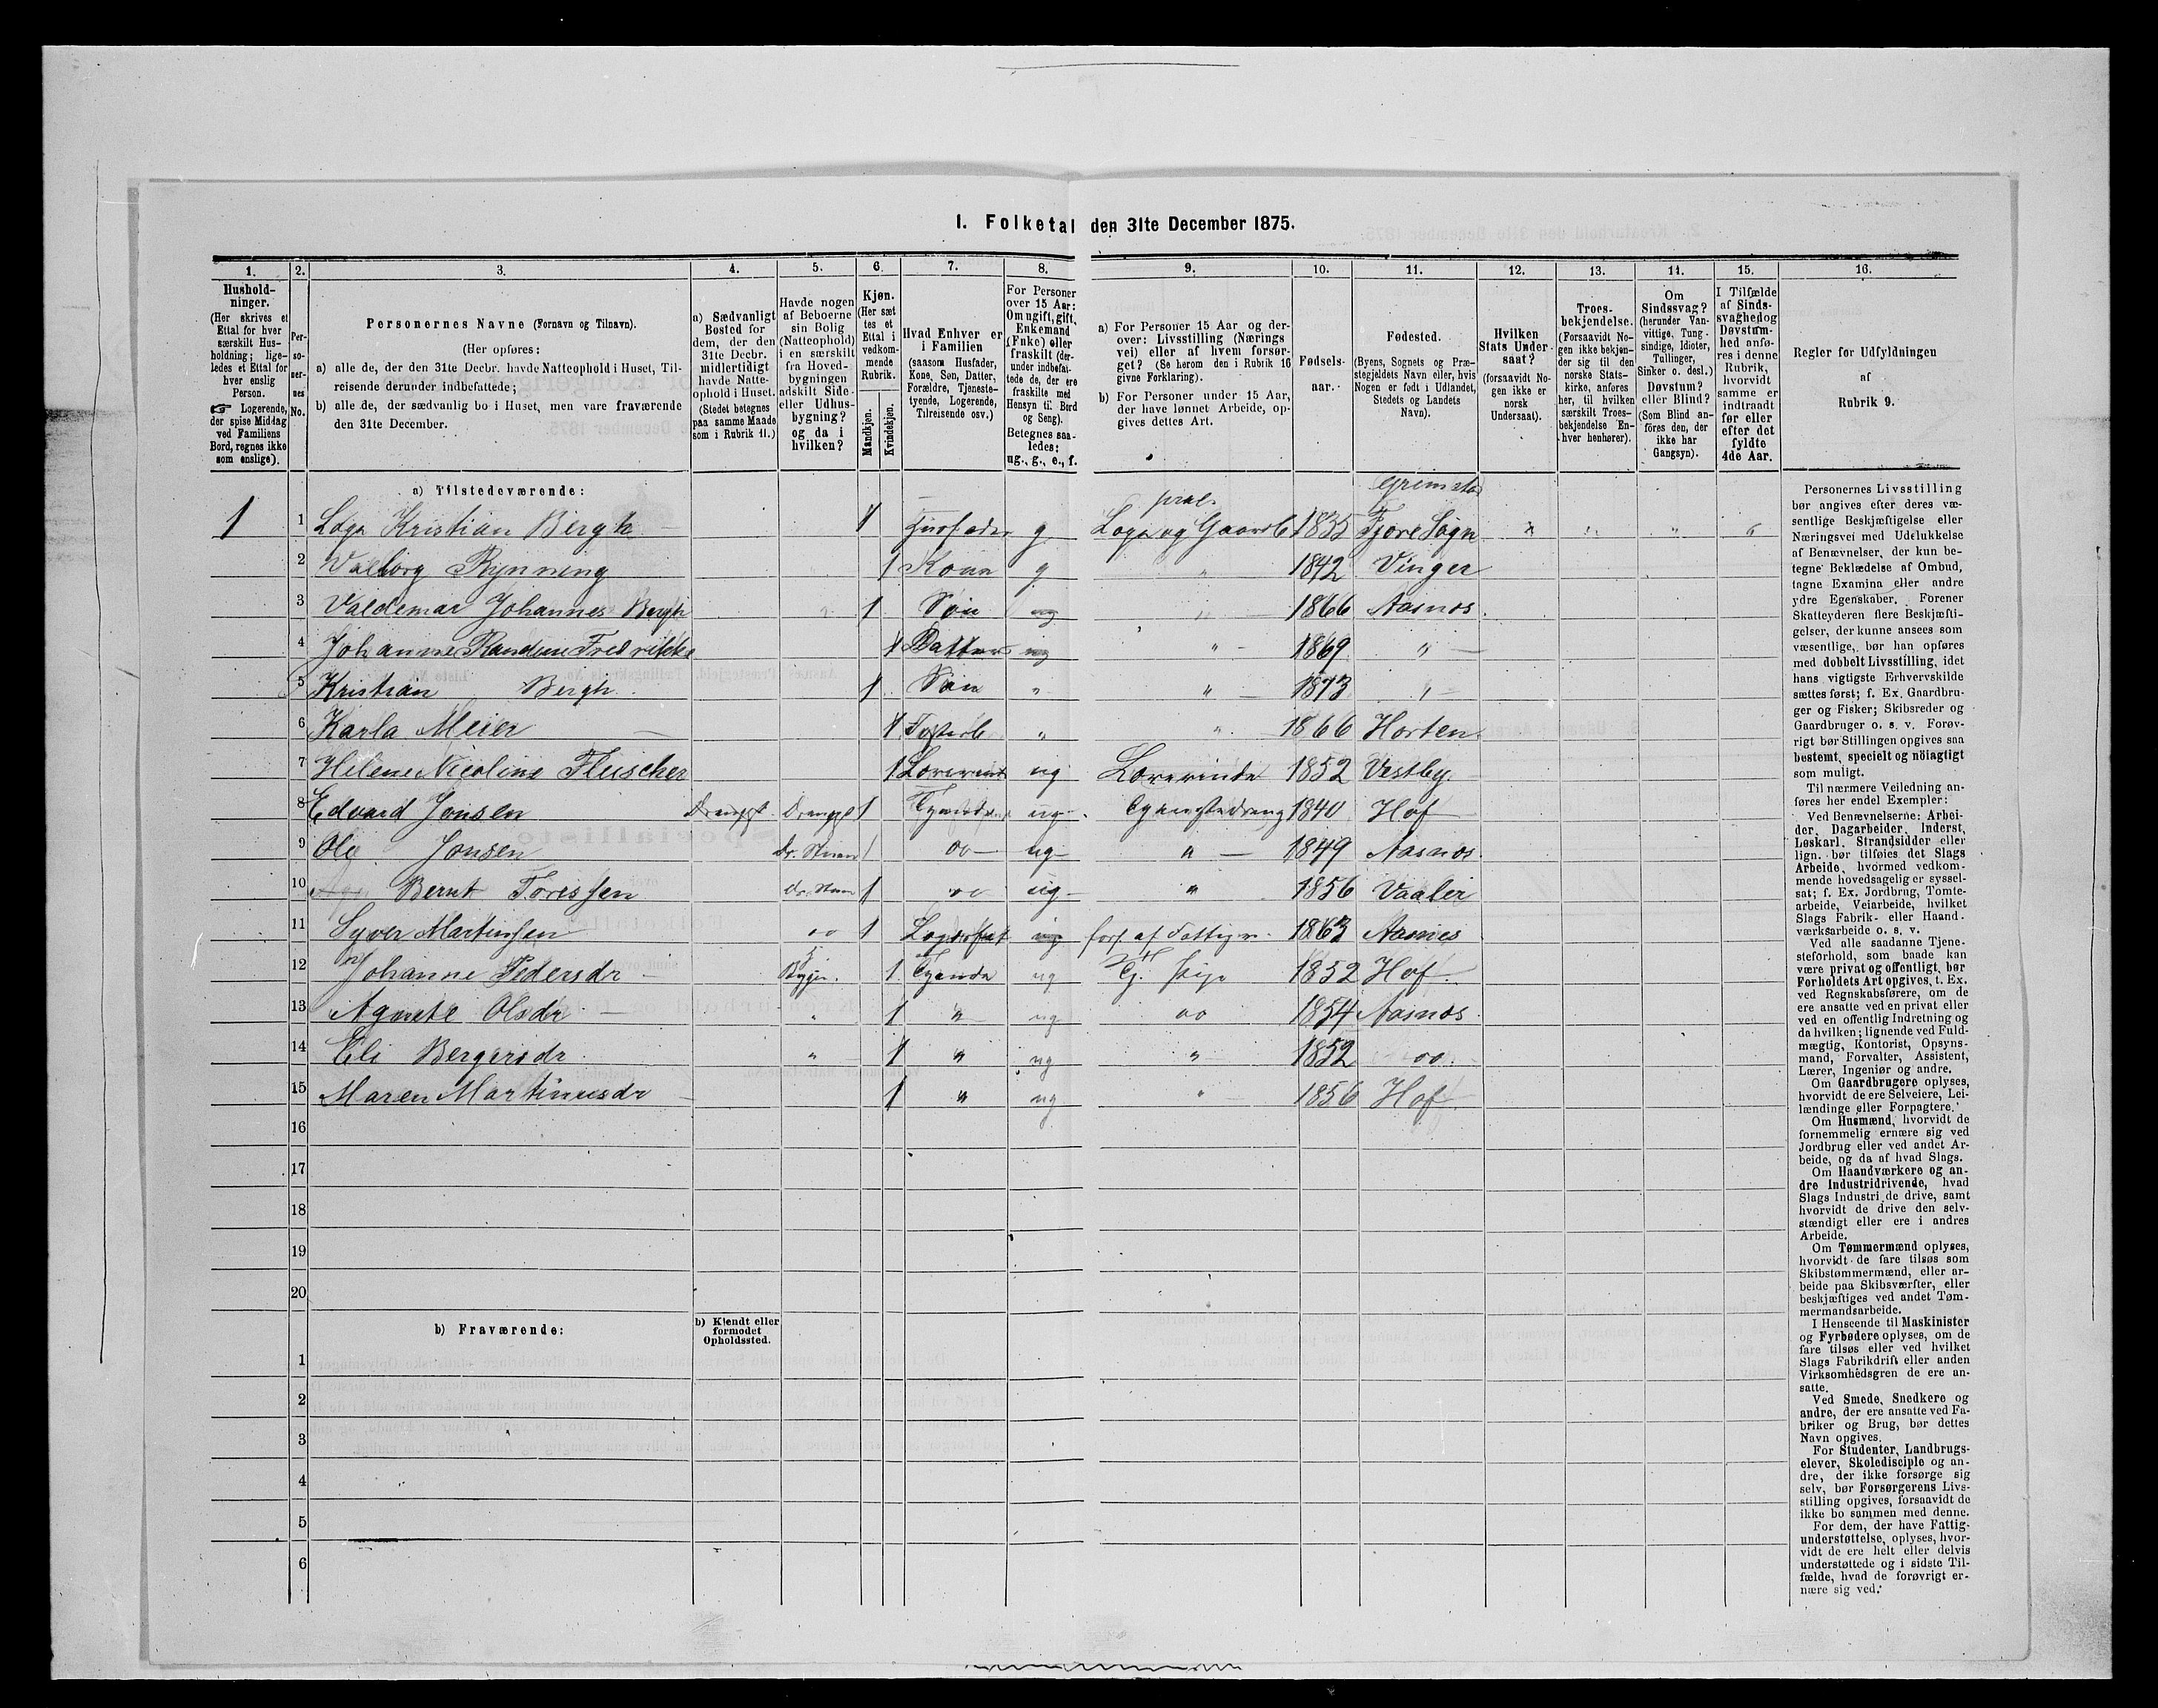 I. Folketal den 31te December 1875.
1. 2. 3. 4. 5. 6. 7. 8. 9. 10. 11. 12. 13. 14. 15. 16.
Hushold-
ninger.
(Her skrives et
Ettal for hver
særskilt Hus-
holdning; lige-
ledes et Ettal for
hver enslig
Person.
☞ Logerende,
der spise Middag
ved Familiens
Bord, regnes ikke
som enslige).
Per-
so-
ner-
nes
No.
Personernes Navne (Fornavn og Tilnavn).
(Her opføres:
a) alle de, der den 31te Decbr. havde Natteophold i Huset, Til-
reisende derunder indbefattede;
b) alle de, der sædvanlig bo i Huset, men vare fraværende
den 31te December.
a) Sædvanligt
Bosted for
dem, der den
31te Decbr.
midlertidigt
havde Natte-
ophold i Huset.
(Stedet betegnes
paa samme Maade
som i Rubrik 11.)
Havde nogen
af Beboerne
sin Bolig
(Natteophold)
i en særskilt
fra Hoved-
bygningen
adskilt Side-
eller Udhus-
bygning?
og da i
hvilken?
Kjøn.
(Her sæt
tes et
Ettal i
vedkom-
mende
Rubrik.
Mandkjøn.
Kvindekjøn.
Hvad Enhver er
i Familien
(saasom Husfader,
Kone, Søn, Datter,
Forældre, Tjeneste-
tyende, Logerende,
Tilreisende osv.)
For Personer
over 15 Aar:
Om ugift, gift,
Enkemand
(Enke) eller
fraskilt (der-
under indbefat-
tede de, der ere
fraskilte med
Hensyn til Bord
og Seng).
Betegnes saa-
ledes:
ug., g., e., f.
a) For Personer 15 Aar og der-
over: Livsstilling (Nærings
vei) eller af hvem forsør-
get? (Se herom den i Rubrik 16
givne Forklaring).
b) For Personer under 15 Aar,
der have lønnet Arbeide, op-
gives dettes Art.
Fødsels-
aar.
Fødested.
(Byens, Sognets og Præ-
stegjeldets Navn eller, hvis
Nogen er født i Udlandet,
Stedets og Landets
Navn).
Hvilken
Stats Under-
saat?
(forsaavidt No-
gen ikke er
norsk
Undersaat).
Troes-
bekjendelse.
(Forsaavidt No-
gen ikke bekjen-
der sig til den
norske Stats-
kirke, anføres
her, til hvilken
særskilt Troes-
bekjendelse En-
hver henhører).
Om
Sindssvag?
(herunder Van-
vittige, Tung-
sindige, Idioter,
Tullinger,
Sinker o. desl.)
Døvstum?
eller Blind?
(Som Blind an-
føres den, der
ikke har
Gangsyn).
I Tilfælde
af Sinds-
svaghed og
Døvstum-
hed anfø-
res i denne
Rubrik,
hvorvidt
samme er
indtraadt
før eller
efter det
fyldte
4de Aar.
Regler for Udfyldningen
af
Rubrik 9.
a) Tilstedeværende:
1 1 Kristian Bergh 1 Husfader g 1835
2 Valborg Rynning 1 Kone g " 1842 Vinger
3 Valdemar Johannes Bergh 1 Søn ug " 1866 Aasnes
4 Johanne Fredrikke 1 Datter ug " 1869 "
5 Kristian Bergh 1 Søn " " 1873 "
6 Karla Meier 1 " " 1866 Horten
7 Helene Nicoline Fleischer 1 ug Lærerinde 1852 Vestby
8 Edvard Jonsen 1 ug 1840 Hof
9 Ole Jonsen 1 oo ug " 1849 Aasnes
10 Bernt 1 oo ug " 1856 Vaaler
11 Syver Martinsen oo 1 ug fors. af 1863 Aasnes
12 Johanne Pedersdr 1 Tyende ug 1852 Hof
13 Agnete Olsdr " 1 " ug oo 1854 Aasnes
14 Eli Bergersdr " 1 " ug " 1852 oo
15 Maren Martinusdr 1 " ug " 1856 Hof
16
17
18
19
20
b) Fraværende:
b) Kjendt eller
formodet
Opholdssted.
1
2
3
4
5
6
Personernes Livsstilling
bør angives efter deres væ-
sentlige Beskjæftigelse eller
Næringsvei med Udelukkelse
af Benævnelser, der kun be-
tegne Beklædelse af Ombud,
tagne Examina eller andre
ydre Egenskaber. Forener
Skatteyderen flere Beskjæfti-
gelser, der kunne ansees som
væsentlige, bør han opføres
med dobbelt Livsstilling, idet
hans vigtigste Erhvervskilde
sættes først; f. Ex. Gaardbru-
ger og Fisker; Skibsreder og
Gaardbruger o. s. v. Forøv-
rigt bør Stillingen opgives saa
bestemt, specielt og nöiagtigt
som muligt.
Til nærmere Veiledning an-
føres her endel Exempler:
Ved Benævnelserne: Arbei-
der, Dagarbeider, Inderst,
Løskarl, Strandsidder eller
lign. bør tilføies det Slags
Arbeide, hvormed vedkom-
mende hovedsagelig er syssel-
sat; f. Ex. Jordbrug, Tomte-
arbeide, Veiarbeide, hvilket
Slags Fabrik- eller Haand-
værksarbeide o. s. v.
Ved alle saadanne Tjene-
steforhold, som baade kan
være privat og offentligt, bør
Forholdets Art opgives, t. Ex.
ved Regnskabsførere, om de
ere ansatte ved en privat eller
ved en offentlig Indretning og
da hvilken; lignende ved Fuld-
mægtig, Kontorist, Opsyns-
mand, Forvalter, Assistent,
Lærer, Ingeniør og andre.
Om Gaardbrugere oplyses,
hvorvidt de ere Selveiere, Lei-
lændinge eller Forpagtere.
Om Husmænd, hvorvidt de
fornemmelig ernære sig ved
Jordbrug eller ved andet Ar-
beide, og da af hvad Slags.
Om Haandværkere og an-
dre Industridrivende, hvad
Slags Industri de drive, samt
hvorvidt de drive den selv-
stændigt eller ere i andres
Arbeide.
Om Tømmermænd oplyses,
hvorvidt de fare tilsøs som
Skibstømmermænd, eller ar-
beide paa Skibsværfter, eller
beskjæftiges ved andet Tøm-
mermandsarbeide.
I Henseende til Maskinister
og Fyrbødere oplyses, om de
fare tilsøs eller ved hvilket
Slags Fabrikdrift eller anden
Virksomhedsgren de ere an-
satte.
Ved Smede, Snedkere og
andre, der ere ansatte ved Fa-
briker og Brug, bør dettes
Navn opgives.
For Studenter, Landbrugs-
elever, Skoledisciple og an-
dre, der ikke forsørge sig
selv, bør Forsørgerens Livs-
stilling opgives, forsaavidt de
ikke bo sammen med denne.
For dem, der have Fattig-
understøttelse, oplyses, hvor-
vidt de ere helt eller delvis
understøttede og i sidste Til-
fælde, hvad de forøvrigt er-
nære sig ved.